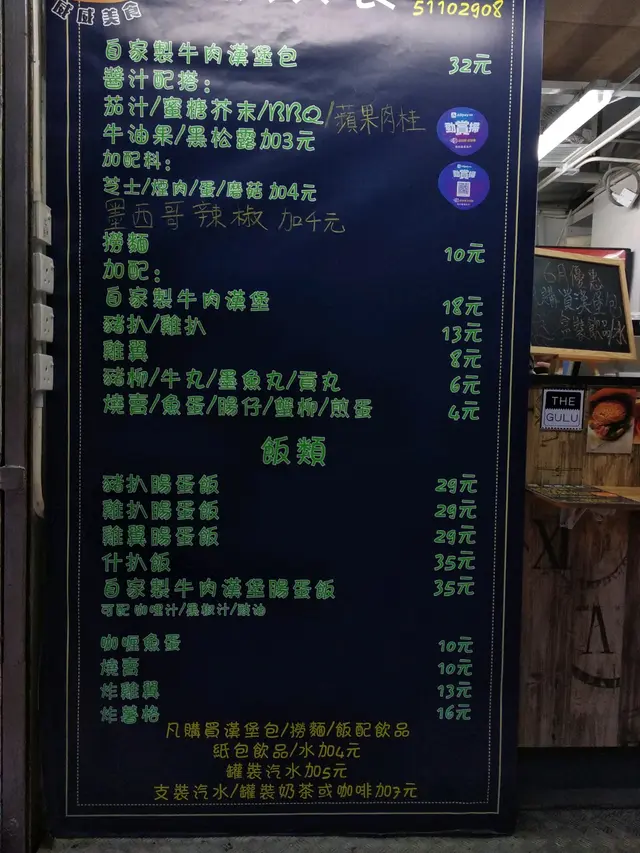 威威美食
51102908
自家製牛肉漢堡包 32元
醬汁配搭：
茄汁/蜜糖芥末/BBQ/蘋果肉桂
牛油果/黑松露加3元
加配料：
芝士/煙肉/蛋/磨菇 加4元
墨西哥辣椒 加4元
撈麵 10元
加配：
自家製牛肉漢堡 18元
豬扒/雞扒 13元
雞翼 8元
豬柳/牛丸/墨魚丸/貢丸 6元
燒賣/魚蛋/腸仔/蟹柳/煎蛋 4元
飯類
豬扒腸蛋飯 29元
雞扒腸蛋飯 29元
雞翼腸蛋飯 29元
什扒飯 35元
自家製牛肉漢堡腸蛋飯 35元
可配咖喱汁/黑椒汁/豉油
咖喱魚蛋 10元
燒賣 10元
炸雞翼 13元
炸薯格 16元
凡購買漢堡包/撈麵/飯配飲品
紙包飲品/水加4元
罐裝汽水加5元
支裝汽水/罐裝奶茶或咖啡加7元
THE
GULU